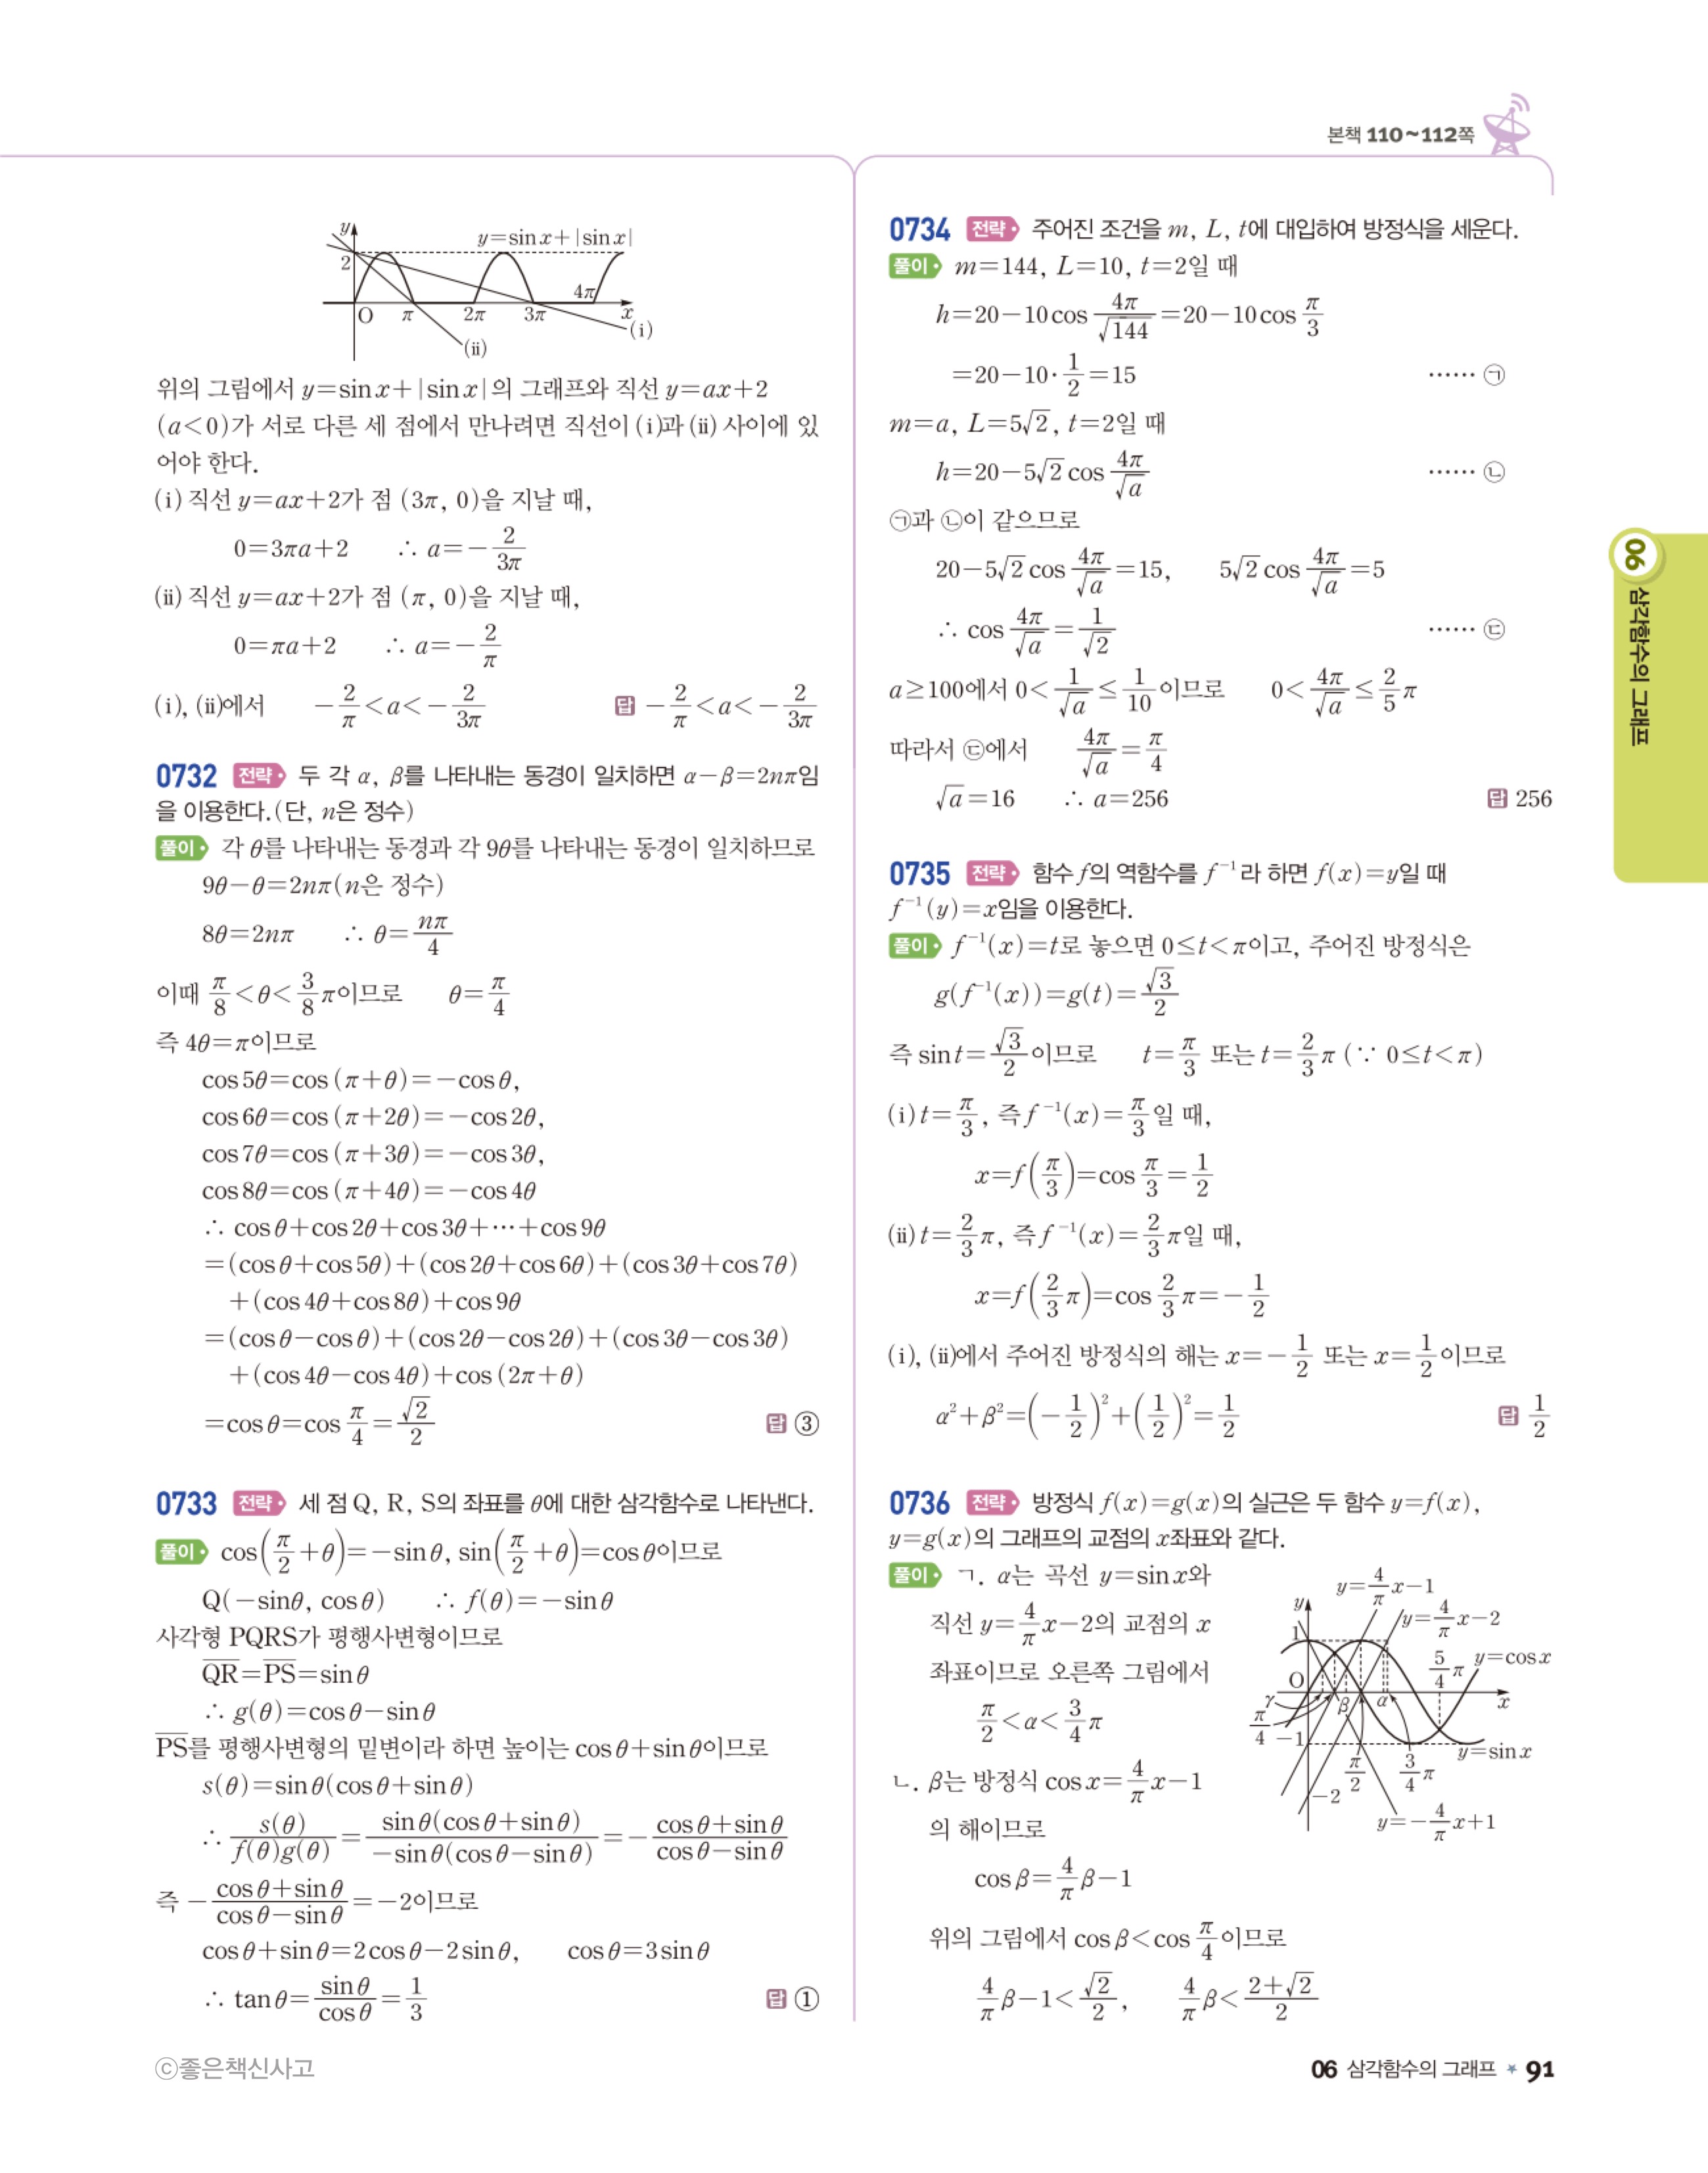 본책 110~112쪽
y
y=sin x+|sin x|
2
4π
O π 2π 3π x
(i)
(ii)
위의 그림에서 y=sin x+|sin x|의 그래프와 직선 y=ax+2
(a<0)가 서로 다른 세 점에서 만나려면 직선이 (i)과 (ii) 사이에 있
어야 한다.
(i) 직선 y=ax+2가 점 (3π, 0)을 지날 때,
0=3πa+2 ∴ a=-2/3π
(ii) 직선 y=ax+2가 점 (π, 0)을 지날 때,
0=πa+2 ∴ a=-2/π
(i), (ii)에서 -2/π<a<-2/3π 답 -2/π<a<-2/3π
0732 전략 두 각 α, β를 나타내는 동경이 일치하면 α-β=2nπ임
을 이용한다. (단, n은 정수)
풀이 각 θ를 나타내는 동경과 각 9θ를 나타내는 동경이 일치하므로
9θ-θ=2nπ(n은 정수)
8θ=2nπ ∴ θ=nπ/4
이때 π/8<θ<3/8π이므로 θ=π/4
즉 4θ=π이므로
cos 5θ=cos (π+θ)=-cos θ,
cos 6θ=cos (π+2θ)=-cos 2θ,
cos 7θ=cos (π+3θ)=-cos 3θ,
cos 8θ=cos (π+4θ)=-cos 4θ
∴ cos θ+cos 2θ+cos 3θ+⋯+cos 9θ
=(cos θ+cos 5θ)+(cos 2θ+cos 6θ)+(cos 3θ+cos 7θ)
+(cos 4θ+cos 8θ)+cos 9θ
=(cos θ-cos θ)+(cos 2θ-cos 2θ)+(cos 3θ-cos 3θ)
+(cos 4θ-cos 4θ)+cos (2π+θ)
=cos θ=cos π/4=√2/2 답 ③
0733 전략 세 점 Q, R, S의 좌표를 θ에 대한 삼각함수로 나타낸다.
풀이 cos(π/2+θ)=-sin θ, sin(π/2+θ)=cos θ이므로
Q(-sinθ, cos θ) ∴ f(θ)=-sin θ
사각형 PQRS가 평행사변형이므로
Q̅R̅=P̅S̅=sin θ
∴ g(θ)=cos θ-sin θ
P̅S̅를 평행사변형의 밑변이라 하면 높이는 cos θ+sin θ이므로
s(θ)=sin θ(cos θ+sin θ)
∴ s(θ)/f(θ)g(θ)=sin θ(cos θ+sin θ)/-sin θ(cos θ-sin θ)=-(cos θ+sin θ)/(cos θ-sin θ)
즉 -(cos θ+sin θ)/(cos θ-sin θ)=-2이므로
cos θ+sin θ=2 cos θ-2 sin θ, cos θ=3 sin θ
∴ tan θ=sin θ/cos θ=1/3 답 ①
0734 전략 주어진 조건을 m, L, t에 대입하여 방정식을 세운다.
풀이 m=144, L=10, t=2일 때
h=20-10 cos 4π/√144=20-10 cos π/3
=20-10·1/2=15 ⋯⋯ ㉠
m=a, L=5√2, t=2일 때
h=20-5√2 cos 4π/√a ⋯⋯ ㉡
㉠과 ㉡이 같으므로
20-5√2 cos 4π/√a=15, 5√2 cos 4π/√a=5
∴ cos 4π/√a=1/√2 ⋯⋯ ㉢
a≥100에서 0<1/√a≤1/10이므로 0<4π/√a≤2/5π
따라서 ㉢에서 4π/√a=π/4
√a=16 ∴ a=256 답 256
0735 전략 함수 f의 역함수를 f⁻¹라 하면 f(x)=y일 때
f⁻¹(y)=x임을 이용한다.
풀이 f⁻¹(x)=t로 놓으면 0≤t<π이고, 주어진 방정식은
g(f⁻¹(x))=g(t)=√3/2
즉 sin t=√3/2이므로 t=π/3 또는 t=2/3π (∵ 0≤t<π)
(i) t=π/3, 즉 f⁻¹(x)=π/3일 때,
x=f(π/3)=cos π/3=1/2
(ii) t=2/3π, 즉 f⁻¹(x)=2/3π일 때,
x=f(2/3π)=cos 2/3π=-1/2
(i), (ii)에서 주어진 방정식의 해는 x=-1/2 또는 x=1/2이므로
α²+β²=(-1/2)²+(1/2)²=1/2 답 1/2
0736 전략 방정식 f(x)=g(x)의 실근은 두 함수 y=f(x),
y=g(x)의 그래프의 교점의 x좌표와 같다.
풀이 ㄱ. α는 곡선 y=sin x와
직선 y=4/πx-2의 교점의 x
좌표이므로 오른쪽 그림에서
π/2<α<3/4π
ㄴ. β는 방정식 cos x=4/πx-1
의 해이므로
cos β=4/πβ-1
위의 그림에서 cos β<cos π/4이므로
4/πβ-1<√2/2, 4/πβ<(2+√2)/2
y=4/πx-1
y
y=4/πx-2
1
5/4π
y=cos x
O
γ β α x
π/4
-1
y=sin x
π/2 3/4π
-2
y=-4/πx+1
06 삼각함수의 그래프
ⓒ좋은책신사고
06 삼각함수의 그래프 91